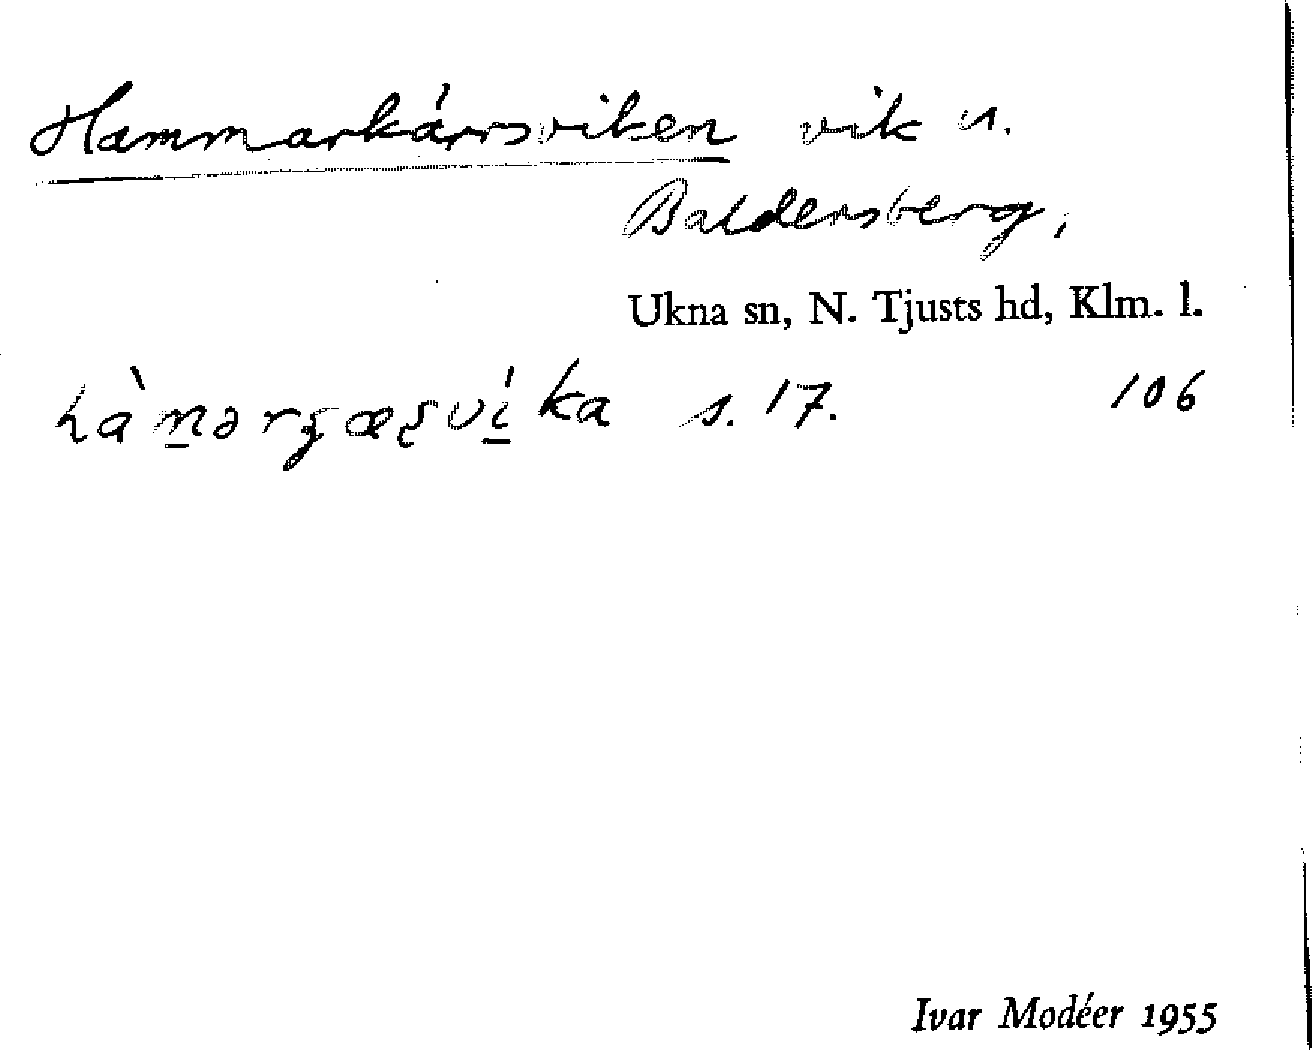 Hammarkärrsviken vik u.
Baldersberg,
Ukna sn, N. Tjusts hd, Klm. l.
s. 17. 106
Ivar Modéer 1955